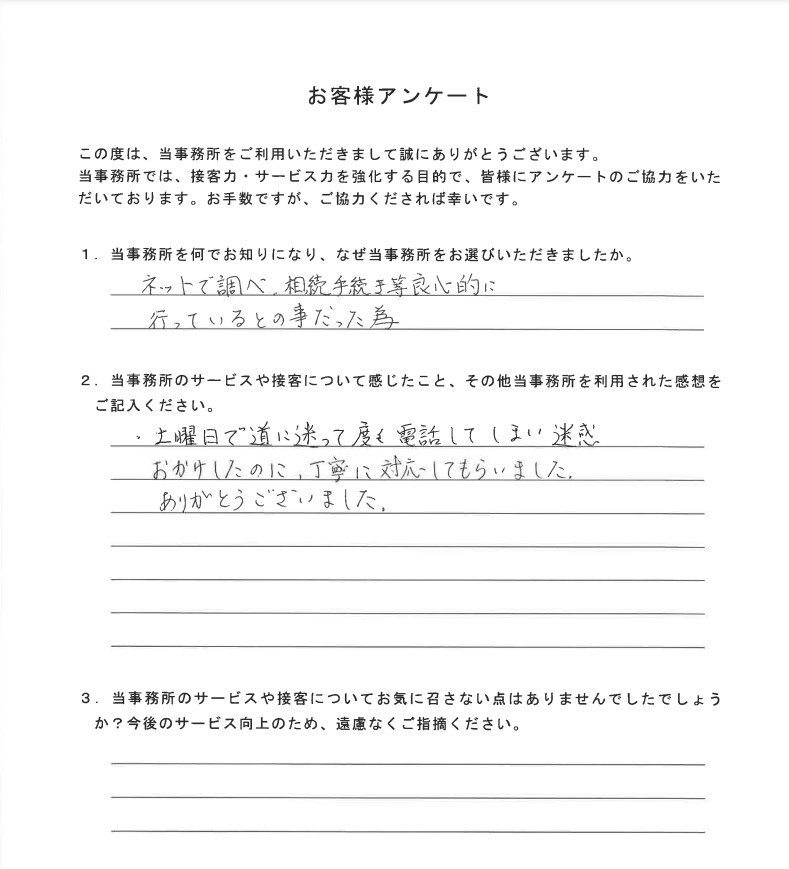 お客様アンケート
この度は、当事務所をご利用いただきまして誠にありがとうございます。
当事務所では、接客力・サービス力を強化する目的で、皆様にアンケートのご協力をいた
だいております。お手数ですが、ご協力くだされば幸いです。
1．当事務所を何でお知りになり、なぜ当事務所をお選びいただきましたか。
ネットで調べ、相続手続き等良心的に
行っているとの事だった為
2．当事務所のサービスや接客について感じたこと、その他当事務所を利用された感想を
ご記入ください。
・土曜日で道に迷って度々電話してしまい迷惑
おかけしたのに、丁寧に対応してもらいました。
ありがとうございました。
3．当事務所のサービスや接客についてお気に召さない点はありませんでしたでしょう
か？今後のサービス向上のため、遠慮なくご指摘ください。